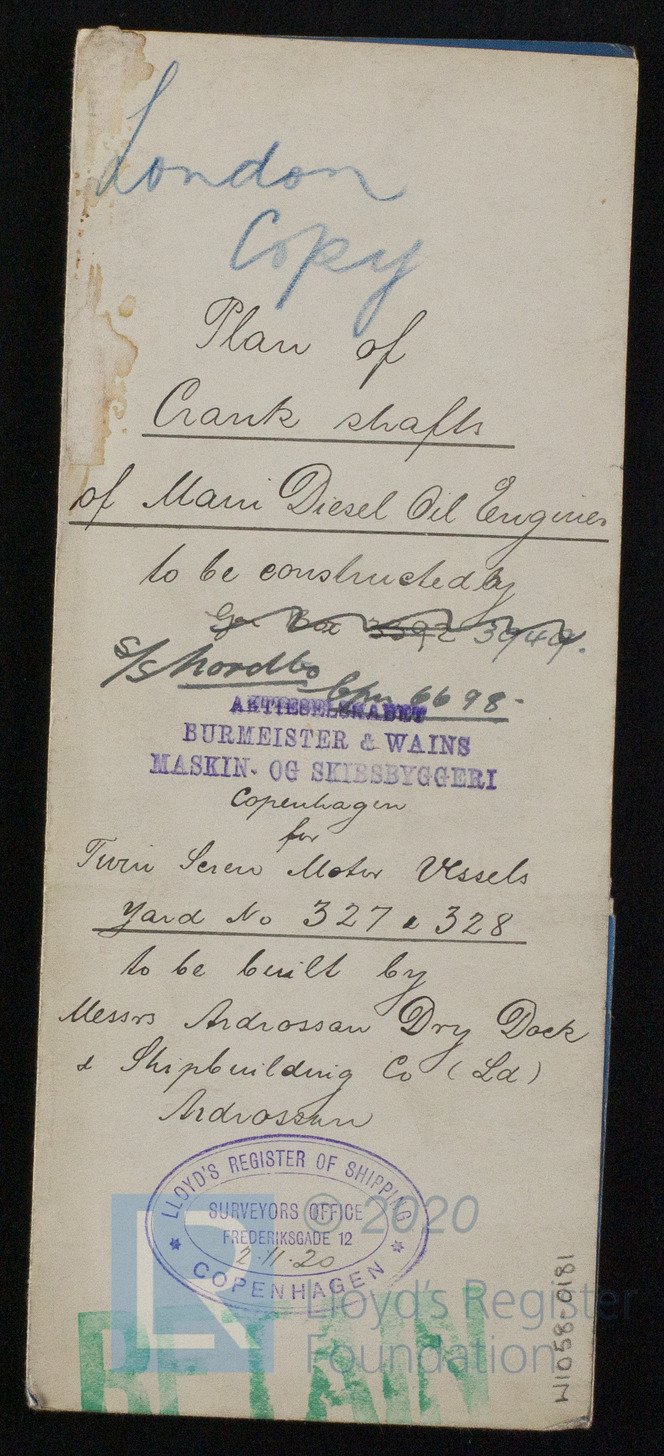 London
Copy
Plan of
Crank shafts
of Main Diesel Oil Engines
to be constructed by
3392 3949.
S/S Nordbo
6698-
AKTIESELSKABET
BURMEISTER & WAINS
MASKIN- OG SKIBSBYGGERI
Copenhagen
for
Twin Screw Motor Vessels
Yard No 327 & 328
to be built by
Messrs Ardrossan Dry Dock
& Shipbuilding Co (Ld)
Ardrossan
LLOYD'S REGISTER OF SHIPPING
SURVEYORS OFFICE
FREDERIKSGADE 12
2.11.20
COPENHAGEN
© 2020
Lloyd's Register
Foundation
RETAIN
W1058-0181